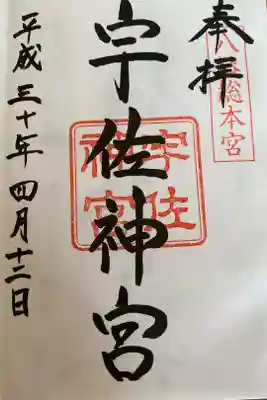 奉拝
八幡総本宮
宇佐神宮
宇佐
神宮
平成三十年四月十二日